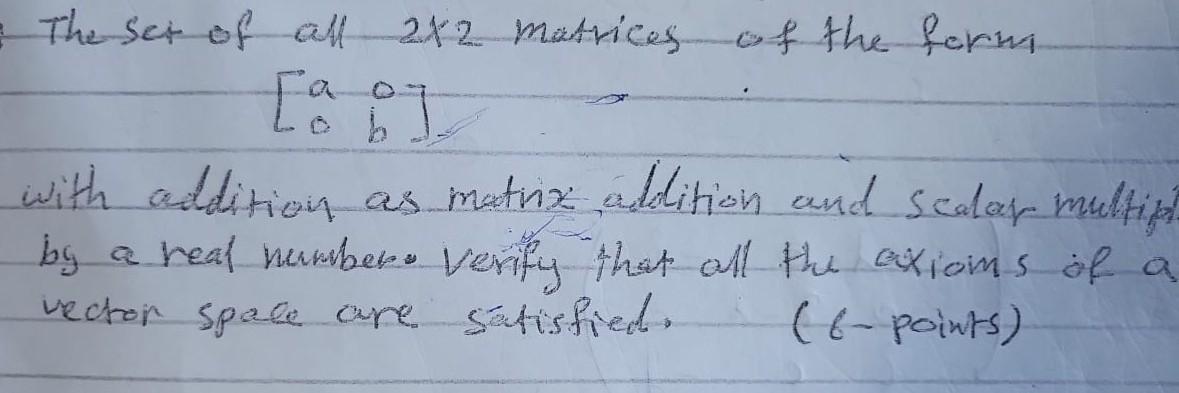 The set of all 2x2 matrices of the form
[a 0
0 b].
with addition as matrix addition and scalar multipl
by a real number. Verify that all the axioms of a
vector space are satisfied. (6-points)